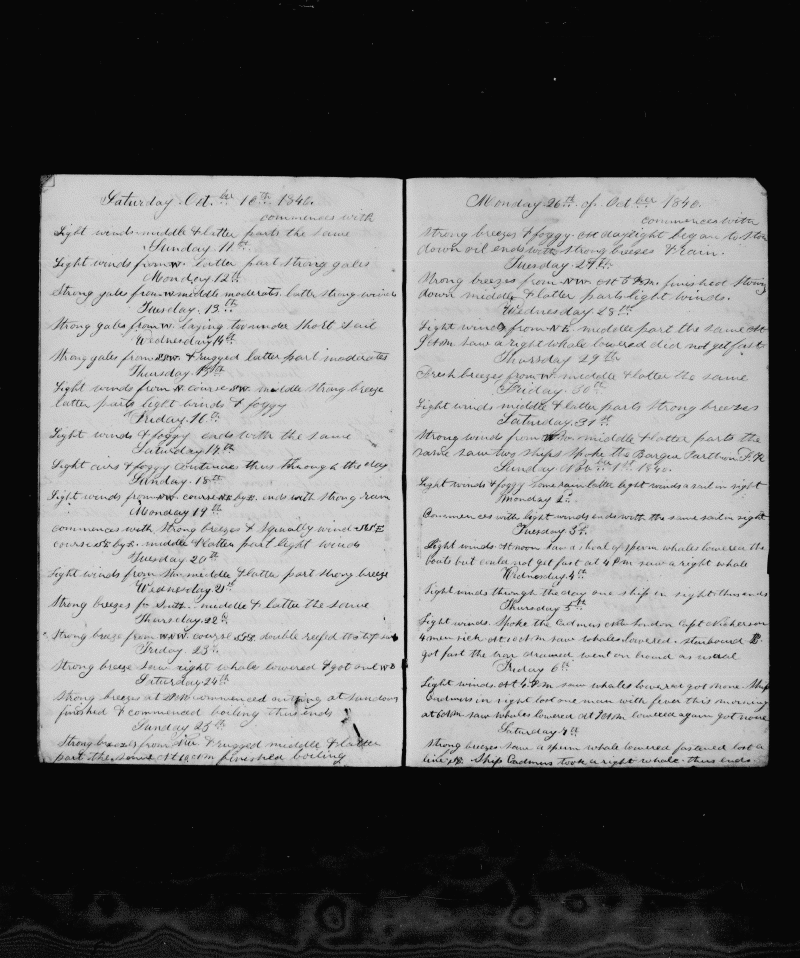 Saturday Oct.ber 10th 1840.
commences with
Light winds middle & latter parts the same
Sunday. 11th
Light winds from W. Latter part strong gales
Monday 12th
Strong gales from W middle moderate. latter strong winds
Tuesday. 13th
Strong gales from W. laying to under short sail
Wednesday 14th
Strong gales from SW. & rugged latter part moderates
Thursday. 15th
Light winds from N. course SW. middle strong breeze
latter parts light winds & foggy
Friday. 16th
Light winds & foggy ends with the same
Saturday 17th
Light airs & foggy continues thus through the day
Sunday. 18th
Light winds from NW. course NE by E. ends with strong rain
Monday 19th
commences with strong breezes & squally wind
course SE by E. middle & latter part light winds
Tuesday 20th
Light winds from middle & latter part strong breeze
Wednesday 21st
Strong breezes fr South. middle & latter the same
Thursday. 22nd
Strong breeze from WNW. course double reefed
Friday. 23rd
Strong breeze Saw right whale lowered & got one
Saturday. 24th
Strong breezes at commenced cutting at sundown
finished & commenced boiling thus ends
Sunday 25th
Strong breezes from & rugged middle & latter
part the same At 10 AM finished boiling
Monday. 26th. of Octber 1840.
commences with
strong breezes & foggy. At daylight began to stow
down oil ends with strong breezes & rain.
Tuesday. 27th.
Strong breezes from NW. At 6 PM. finished stowing
down middle & latter parts light winds.
Wednesday 28th
Light winds from NE. middle part the same At
9 AM saw a right whale lowered did not get fast
Thursday 29th
Fresh breezes from W middle & latter the same
Friday. 30th
Light winds middle & latter parts strong breezes
Saturday. 31st
Strong winds from middle & latter parts the
same saw two ships spoke the Barque Parthian
Sunday Nov.br 1st 1840.
Light winds & foggy some rain latter light winds a sail in sight
Monday 2d
Commences with light winds ends with the same sail in sight
Tuesday 3d
Light winds. At noon saw a shoal of sperm whales lowered the
boats but could not get fast at 4 PM saw a right whale
Wednesday. 4th
Light winds through the day one ship in sight thus ends
Thursday 5th
Light winds. Spoke the Cadmus of New London Capt Nickerson
4 men sick At 10 AM saw whales lowered. starboard B.
got fast the iron drawed went on board as usual
Friday 6th
Light winds. At 4 PM saw whales lowered got none. Ship
Cadmus in sight lost one man with fever this morning
at 6 AM saw whales lowered At 9 AM lowered again got none
Saturday. 7th
Strong breezes Saw a sperm whale lowered fastened lost a
line Ship Cadmus took a right whale. thus ends.